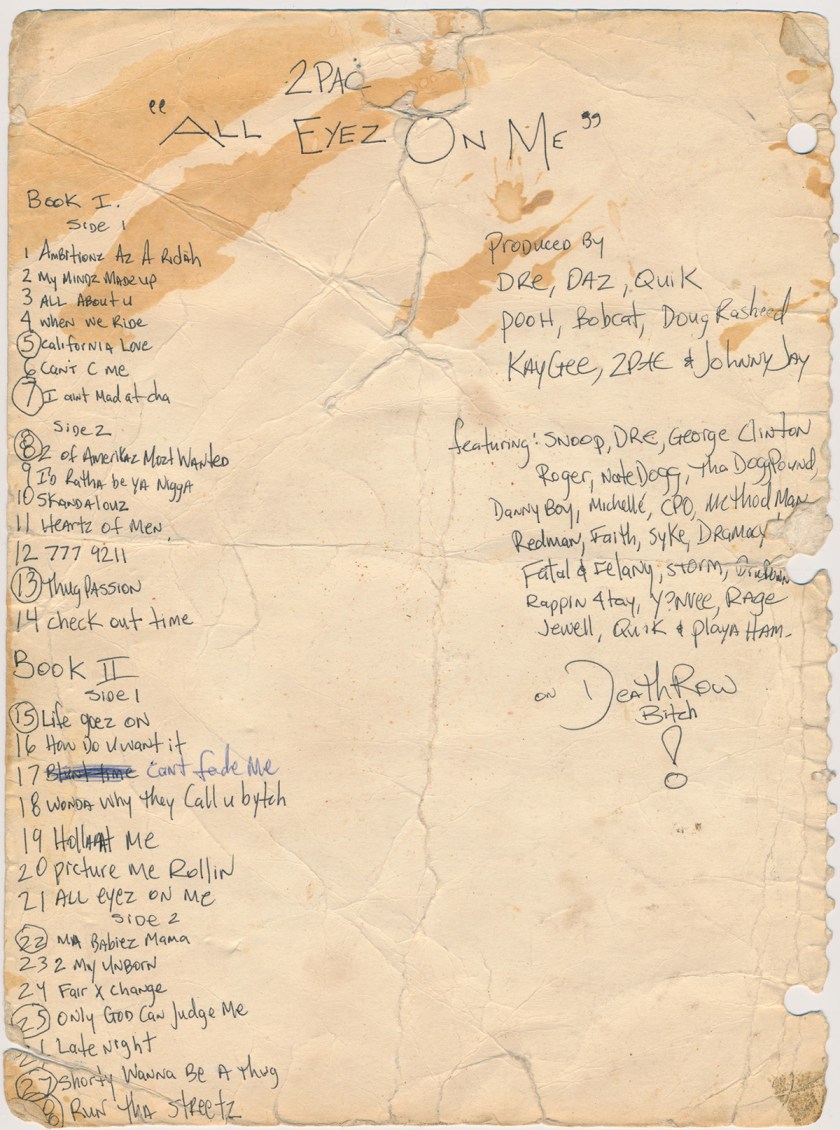 2PAC
"ALL EYEZ ON ME"
Book I.
SIDE 1
1 AmBitionz Az A Ridah
2 My MINDZ MADE UP
3 ALL ABOUT U
4 when we Ride
5 California Love
6 Can't C me
7 I aint Mad at cha
SIDE 2
8 2 of Amerikaz Mozt Wanted
9 I'D Ratha be YA Nigga
10 SKANDALOUZ
11 Heartz of Men.
12 777 9211
13 Thug PASSION
14 check out time
Book II
SIDE 1
15 Life goez ON
16 How Do U want it
17 Blunt time Can't fade Me
18 WONDA Why They Call u bytch
19 Holla At Me
20 picture Me Rollin
21 ALL eyez ON Me
SIDE 2
22 MA Babiez Mama
23 2 My UNBORN
24 Fair X change
25 Only GOD Can Judge Me
Late Night
27 Shorty Wanna Be A Thug
Run Tha Streetz
Produced By
DRe, DAZ, QuiK
POOH, Bobcat, Doug Rasheed
KAYGee, 2PAC & Johnny Jay
featuring: SNOOP, DRE, George Clinton
Roger, Nate Dogg, Tha Dogg Pound
Danny Boy, Michelle, CPO, Method Man
Redman, Faith, Syke, DRAMACY
Fatal & Felany, STORM,
Rappin 4tay, Y?NVEE, RAGE
Jewell, QuiK & Playa HAM-
ON DeathRow
Bitch
!